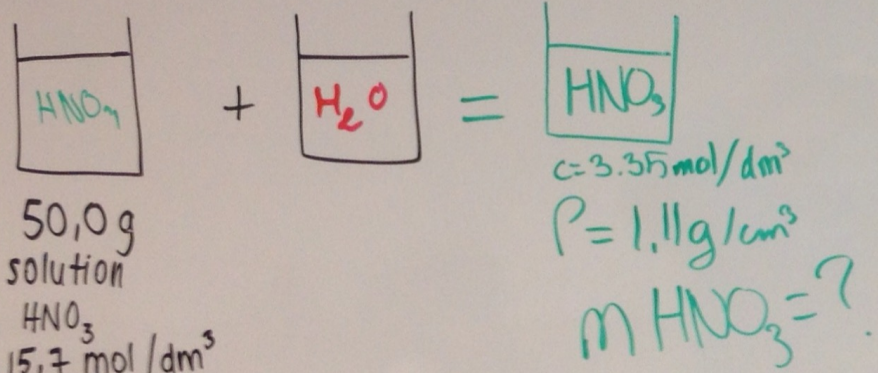 HNO₃ + H₂O = HNO₃
50,0 g
solution
HNO₃
15,7 mol/dm³
c=3.35mol/dm³
ρ=1,11g/cm³
m HNO₃=?